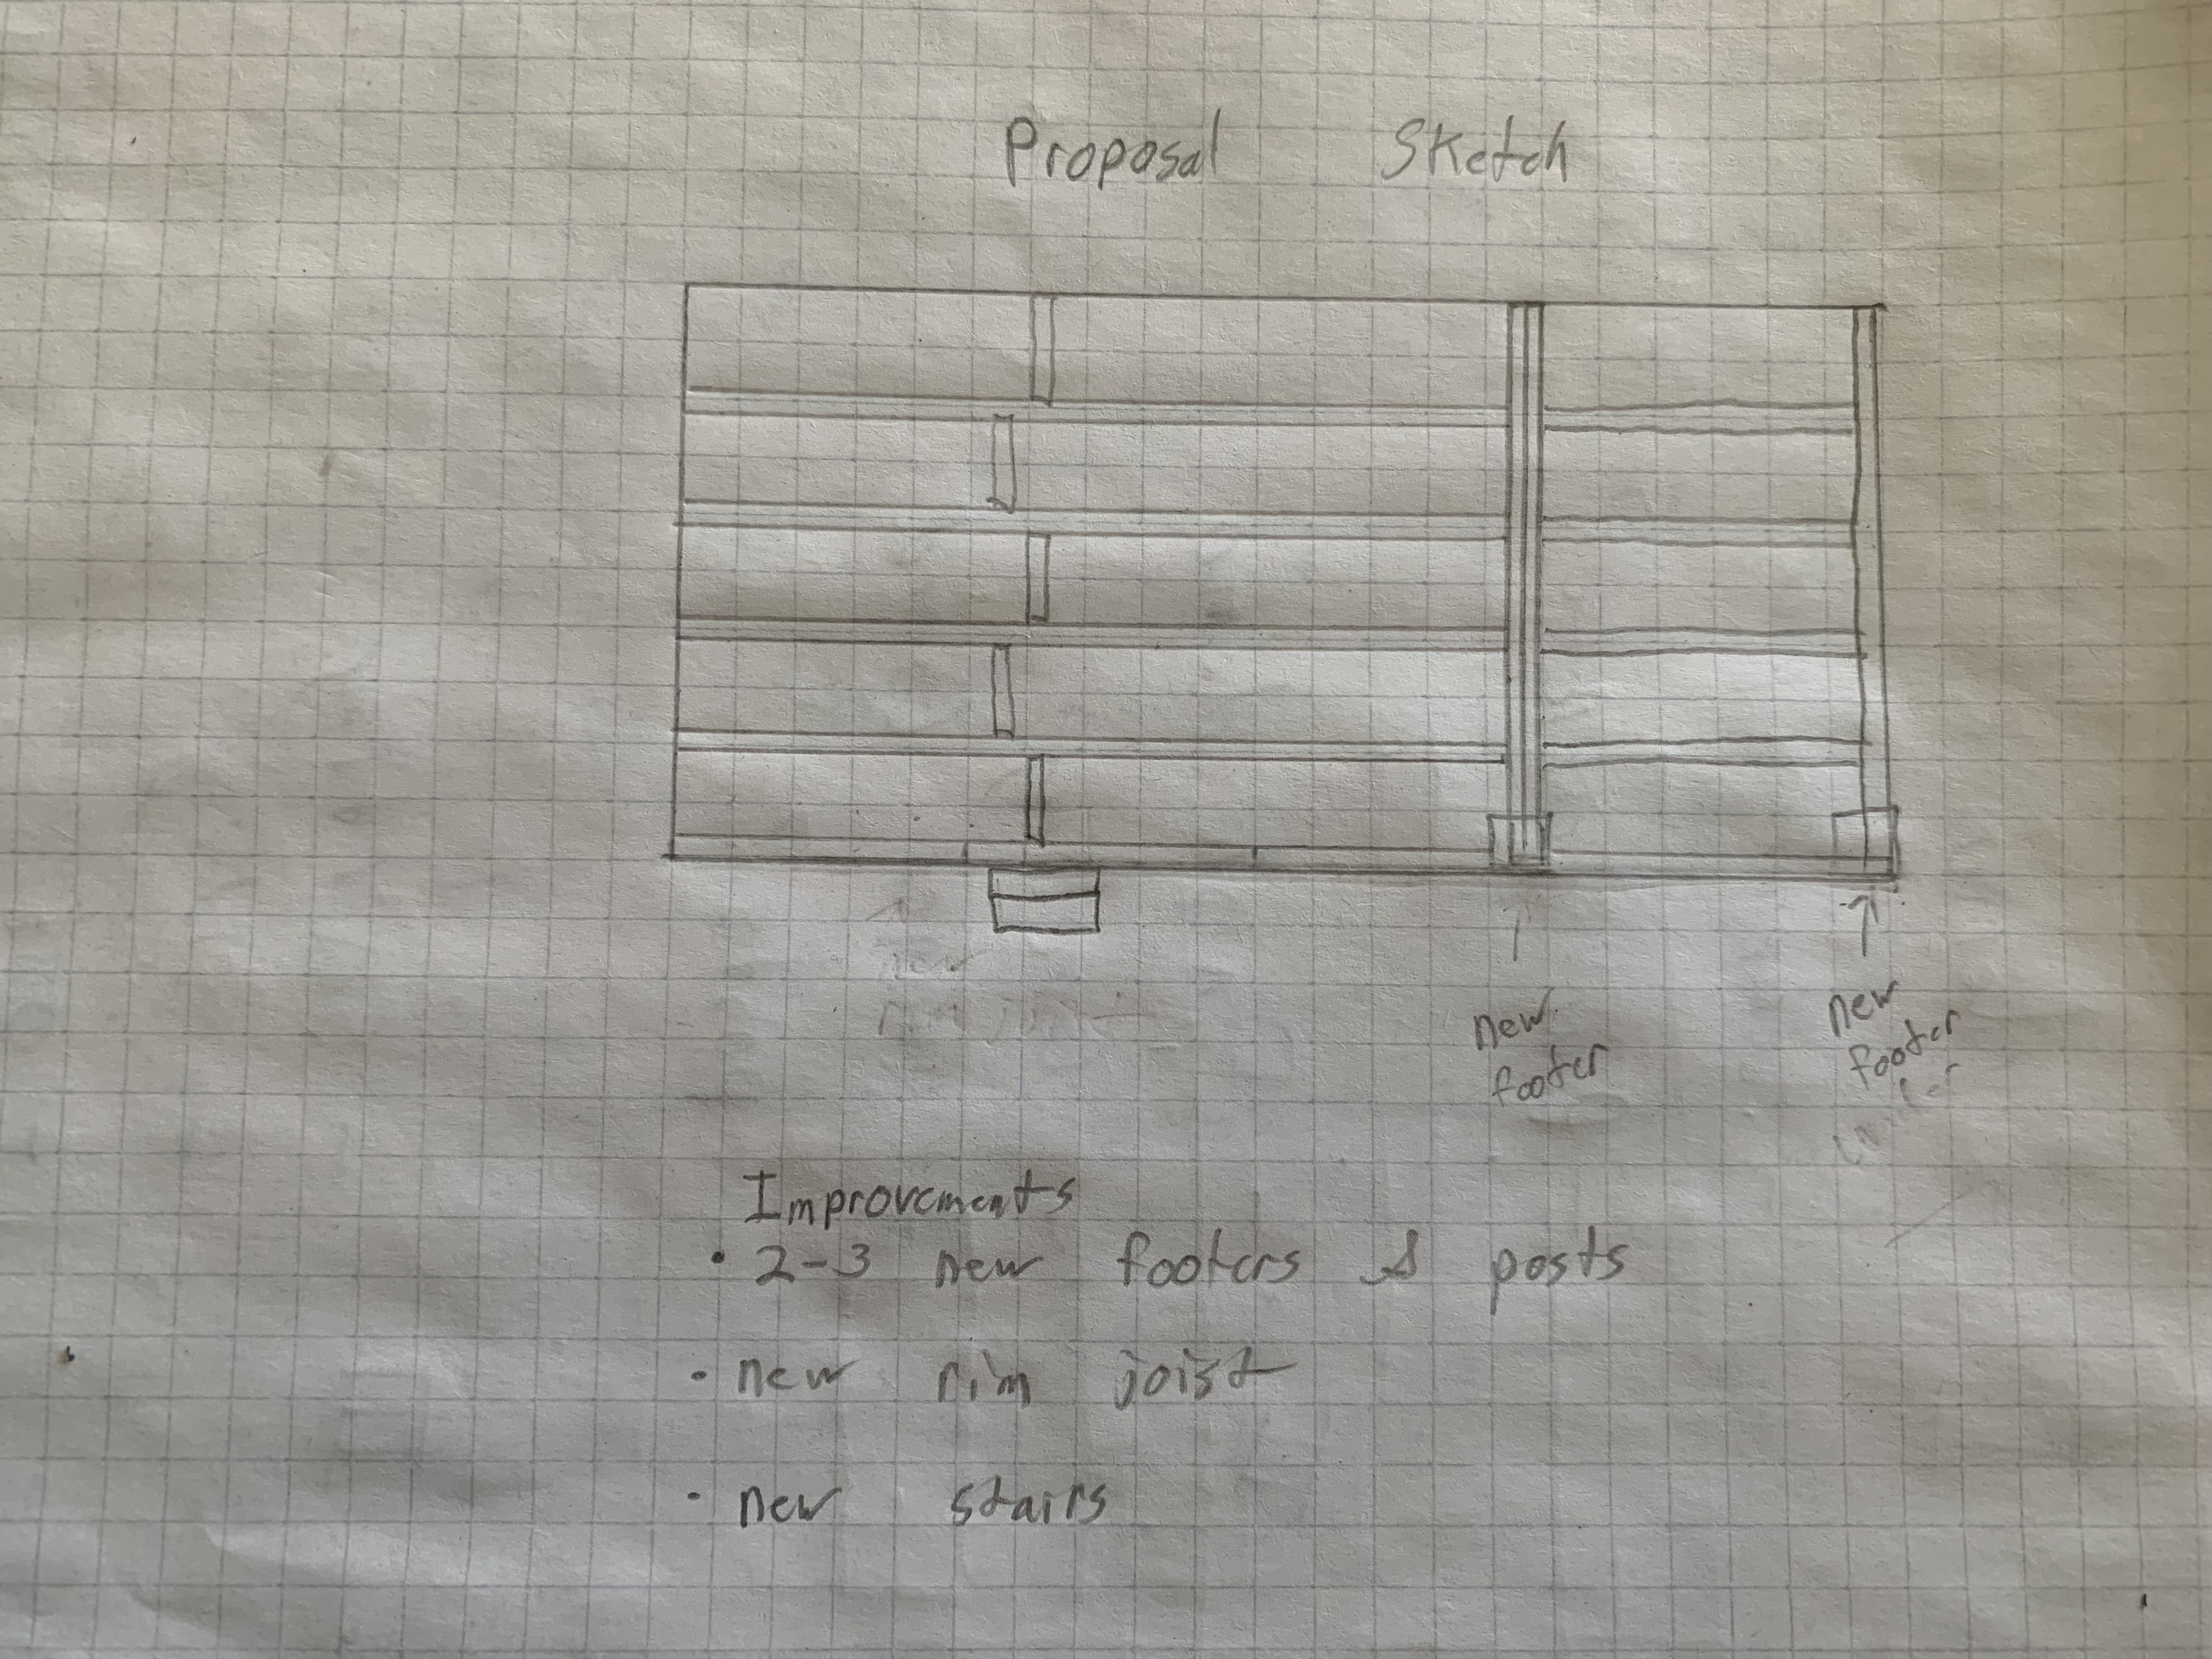 Proposal Sketch
new
rim joist
new
footer
new
footer
Improvements
• 2-3 new footers & posts
• new rim joist
• new stairs